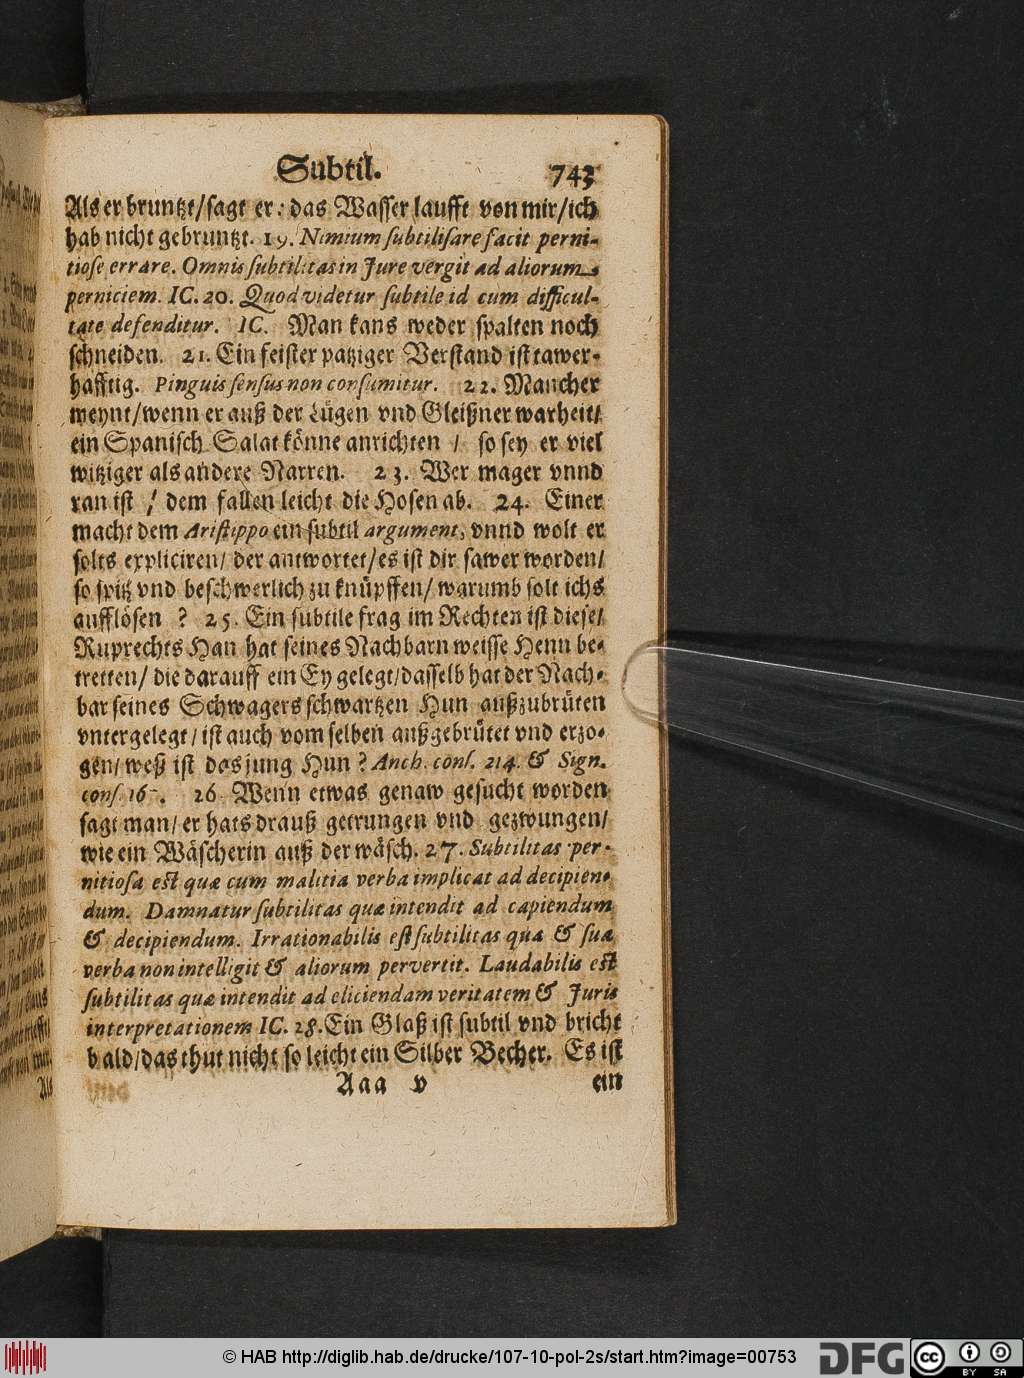 Subtil. 743
Als er bruntzt/sagt er: das Wasser laufft von mir/ich
hab nicht gebruntzt. 19. Nimium subtilisare facit perni-
tiose errare. Omnis subtilitas in Jure vergit ad aliorum
perniciem. IC. 20. Quod videtur subtile id cum difficul-
tate defenditur. IC. Man kans weder spalten noch
schneiden. 21. Ein feister patziger Verstand ist tawer-
hafftig. Pinguis sensus non consumitur. 22. Mancher
meynt/wenn er auß der Lügen vnd Gleißner warheit/
ein Spanisch Salat könne anrichten / so sey er viel
witziger als andere Narren. 23. Wer mager vnnd
ran ist / dem fallen leicht die Hosen ab. 24. Einer
macht dem Aristippo ein subtil argument, vnnd wolt er
solts expliciren/ der antwortet/es ist dir sawer worden/
so spitz vnd beschwerlich zu knüpffen/ warumb solt ichs
aufflösen ? 25. Ein subtile frag im Rechten ist diese/
Ruprechts Han hat seines Nachbarn weisse Henn be-
tretten/ die darauff ein Ey gelegt/dasselb hat der Nach-
bar seines Schwagers schwartzen Hun außzubrüten
vntergelegt/ist auch vom selben außgebrütet vnd erzo-
gen/weß ist das jung Hun ? Anch. cons. 214. & Sign.
cons. 26. Wenn etwas genaw gesucht worden
sagt man/ er hats drauß getrungen vnd gezwungen/
wie ein Wäscherin auß der wäsch. 27. Subtilitas per-
nitiosa est quæ cum malitia verba implicat ad decipien-
dum. Damnatur subtilitas quæ intendit ad capiendum
& decipiendum. Irrationabilis est subtilitas quæ & sua
verba non intelligit & aliorum pervertit. Laudabilis est
subtilitas quæ intendit ad eliciendam veritatem & Juris
interpretationem IC. 28. Ein Glaß ist subtil vnd bricht
bald/das thut nicht so leicht ein Silber Becher. Es ist
Aaa v ein
© HAB http://diglib.hab.de/drucke/107-10-pol-2s/start.htm?image=00753
DFG
cc BY SA